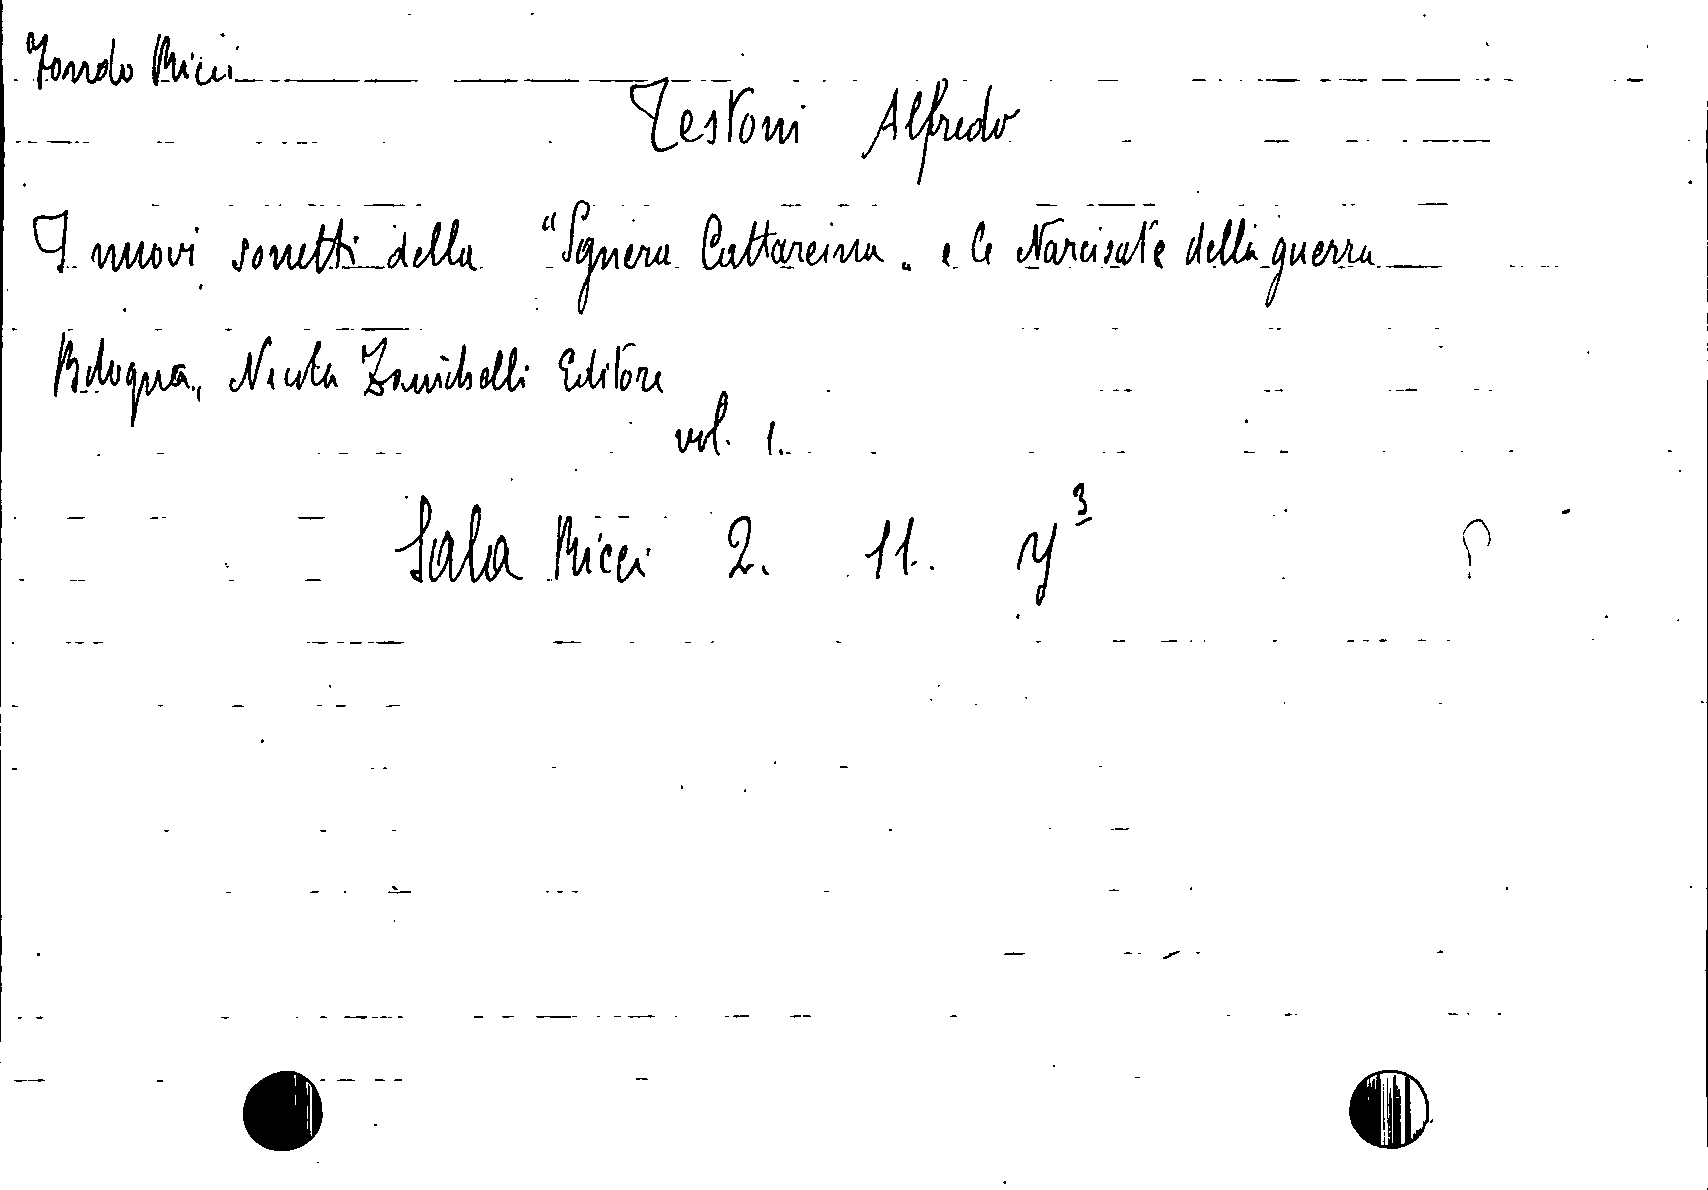 Fondo Ricci
Testoni Alfredo
I nuovi sonetti della "Sgnera Cattareina" e le Narcisate della guerra
Bologna, Nicola Zanichelli Editore
vol. 1.
Sala Ricci 2. 11. y³